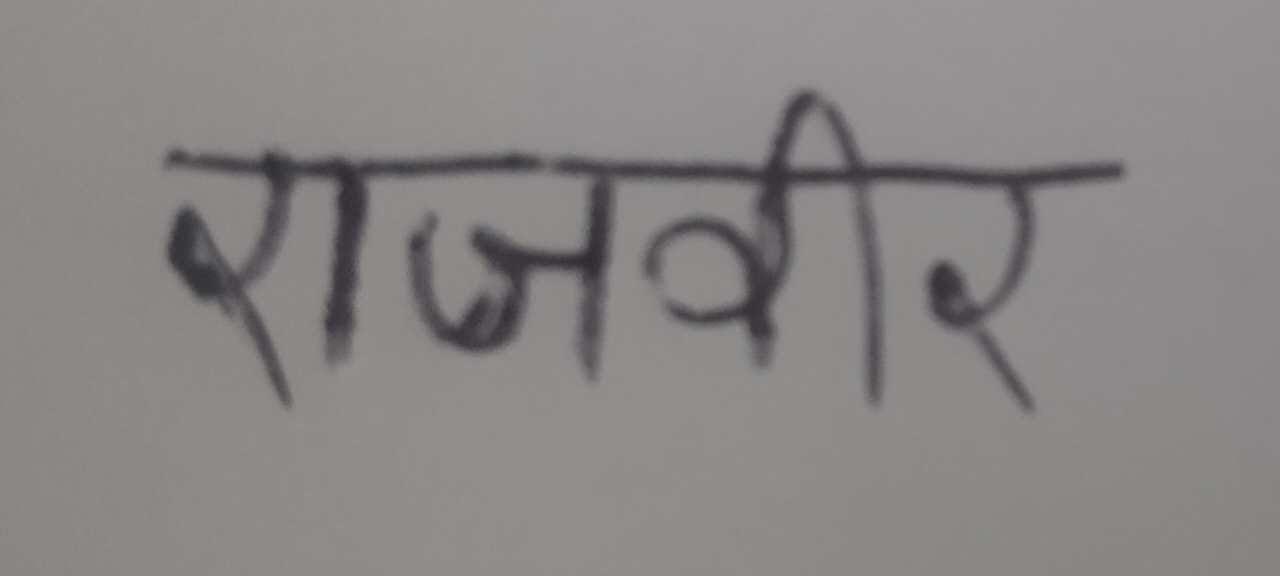 राजवीर